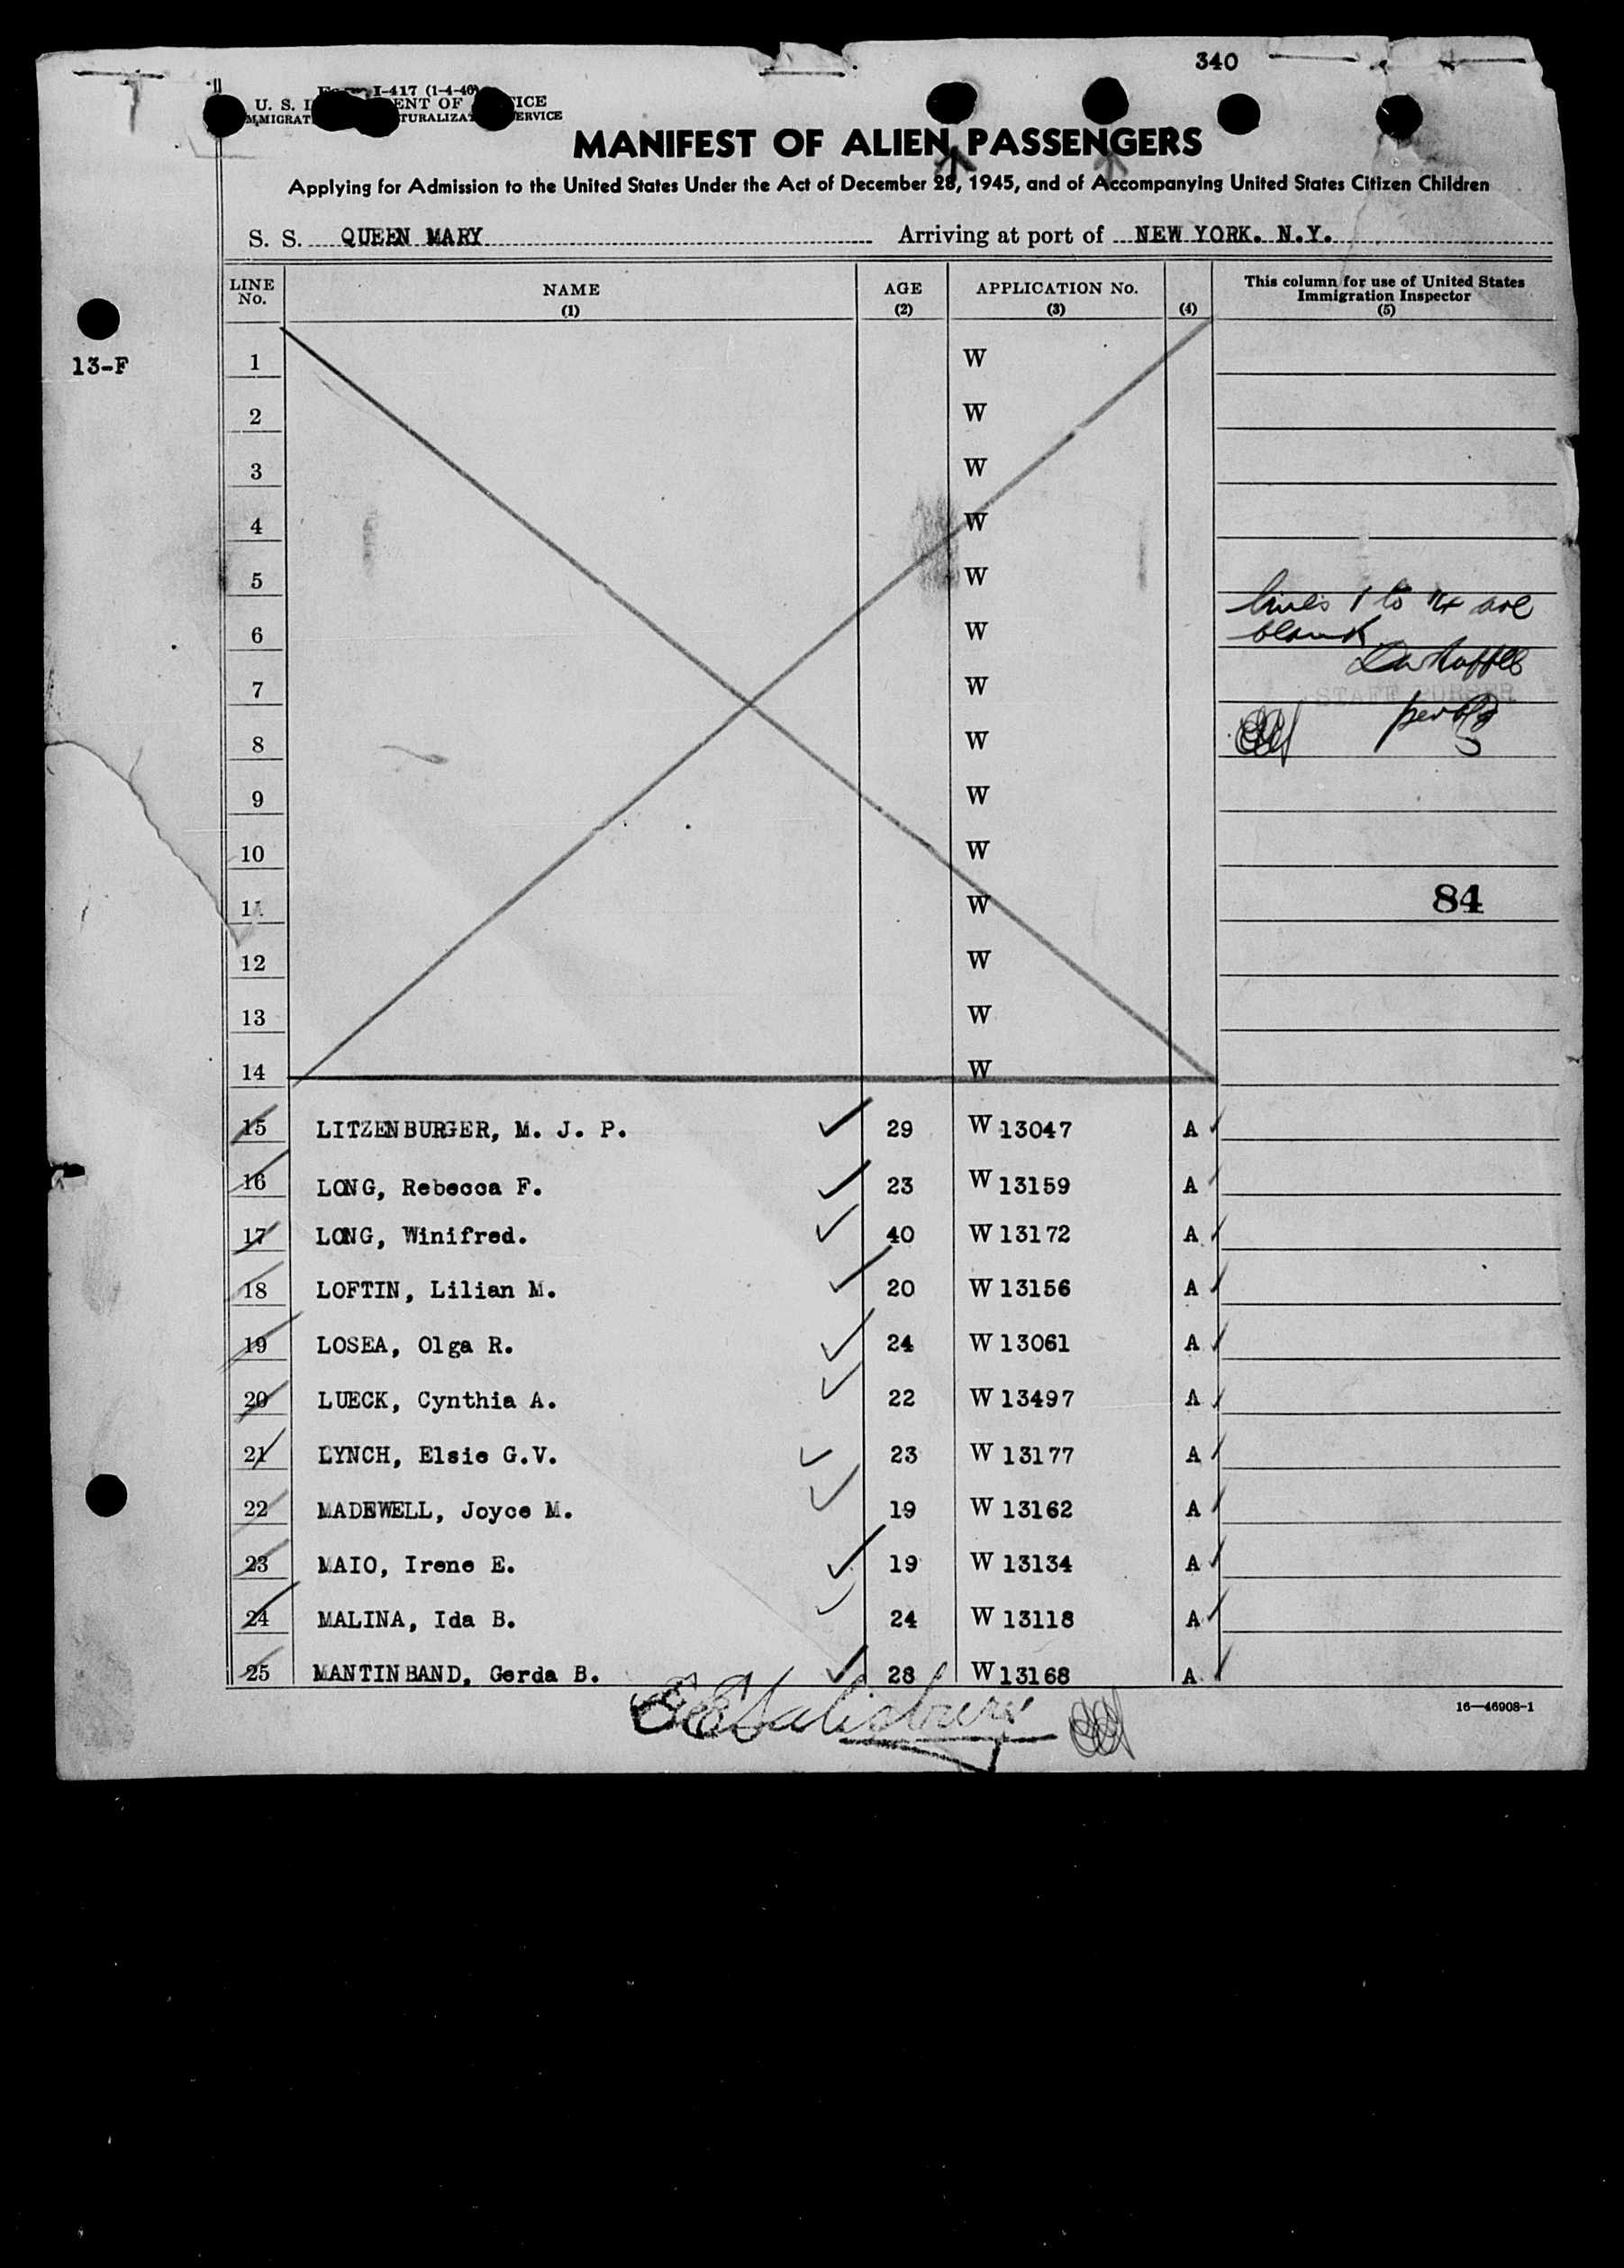 340
Form I-417 (1-4-46)
U. S. ENT OF ICE
MMIGRAT TURALIZAT ERVICE
MANIFEST OF ALIEN PASSENGERS
Applying for Admission to the United States Under the Act of December 28, 1945, and of Accompanying United States Citizen Children
S. S. QUEEN MARY Arriving at port of NEW YORK. N.Y.
LINE No. NAME (1) AGE (2) APPLICATION No. (3) (4) This column for use of United States Immigration Inspector (5)
13-F
1 W
2 W
3 W
4 W
5 W
lines 1 to 14 are
6 W
blank
7 W
STAFF PURSER
8 W
9 W
10 W
11 W 84
12 W
13 W
14 W
15 LITZENBURGER, M. J. P. 29 W 13047 A
16 LONG, Rebecca F. 23 W 13159 A
17 LONG, Winifred. 40 W 13172 A
18 LOFTIN, Lilian M. 20 W 13156 A
19 LOSEA, Olga R. 24 W 13061 A
20 LUECK, Cynthia A. 22 W 13497 A
21 LYNCH, Elsie G.V. 23 W 13177 A
22 MADEWELL, Joyce M. 19 W 13162 A
23 MAIO, Irene E. 19 W 13134 A
24 MALINA, Ida B. 24 W 13118 A
25 MANTINBAND, Gerda B. 28 W 13168 A
EESalisbury
16—46908-1